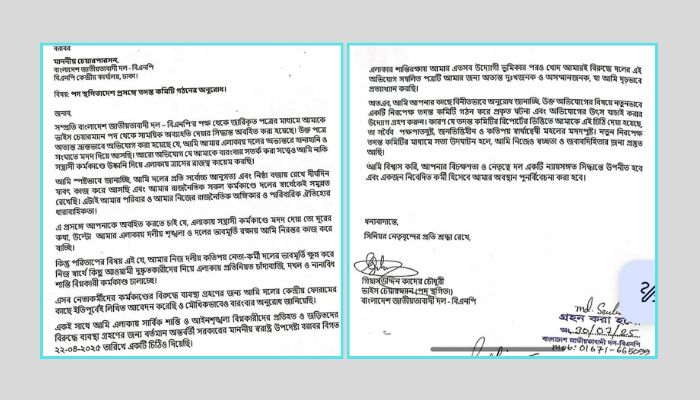 বরাবর
মাননীয় চেয়ারপারসন,
বাংলাদেশ জাতীয়তাবাদী দল - বিএনপি
বিএনপি কেন্দ্রীয় কার্যালয়, ঢাকা।
বিষয়: পদ স্থগিতাদেশ প্রসঙ্গে তদন্ত কমিটি গঠনের অনুরোধ।
জনাব,
সম্প্রতি বাংলাদেশ জাতীয়তাবাদী দল – বিএনপি'র পক্ষ থেকে জারিকৃত পত্রের মাধ্যমে আমাকে
ভাইস চেয়ারম্যান পদ থেকে সাময়িক অব্যহতি দেয়ার সিদ্ধান্ত অবহিত করা হয়েছে। উক্ত পত্রে
অত্যন্ত ভ্রান্তভাবে অভিযোগ করা হয়েছে যে, আমি আমার এলাকায় দলের অভ্যন্তরে হানাহানি ও
সংঘাতে মদদ দিয়ে আসছি। আরো অভিযোগ যে আমাকে বারংবার সতর্ক করা সত্ত্বেও আমি নাকি
সন্ত্রাসী কর্মকাণ্ডে উষ্কানি দিয়ে এলাকায় ত্রাসের রাজত্ব কায়েম করছি।
আমি স্পষ্টভাবে জানাচ্ছি, আমি দলের প্রতি সর্বোচ্চ আনুগত্য এবং নিষ্ঠা বজায় রেখে দীর্ঘদিন
যাবৎ কাজ করে আসছি এবং আমার রাজনৈতিক সকল কর্মকাণ্ডে দলের স্বার্থকেই সমুন্নত
রেখেছি। এটাই আমার পরিবার ও আমার নিজের রাজনৈতিক অঙ্গিকার ও পারিবারিক ঐতিহ্যের
ধারাবাহিকতা।
এ প্রসঙ্গে আপনাকে অবহিত করতে চাই যে, এলাকায় সন্ত্রাসী কর্মকাণ্ডে মদদ দেয়া তো দূরের
কথা, উল্টো আমার এলাকায় দলীয় শৃঙ্খলা ও দলের ভাবমূর্তি রক্ষায় আমি নিরন্তর কাজ করে
যাচ্ছি।
কিন্তু পরিতাপের বিষয় এই যে, আমার নিজ দলীয় কতিপয় নেতা-কর্মী দলের ভাবমূর্তি ক্ষুন্ন করে
নিজ স্বার্থে কিছু আওয়ামী দুষ্কৃতকারীদের নিয়ে এলাকায় প্রতিনিয়ত চাঁদাবাজি, দখল ও নানাবিধ
শান্তি বিঘ্নকারী কর্মকাণ্ড চালাচ্ছে।
এসব নেতাকর্মীদের কর্মকাণ্ডের বিরুদ্ধে ব্যবস্থা গ্রহণের জন্য আমি দলের কেন্দ্রীয় ফোরামের
কাছে ইতিপূর্বেই লিখিত আবেদন করেছি ও মৌখিকভাবেও বারংবার অনুরোধ জানিয়েছি।
একই সাথে আমি এলাকায় সার্বিক শান্তি ও আইনশৃঙ্খলা বিঘ্নকারীদের প্রতিহত ও জড়িতদের
বিরুদ্ধে ব্যবস্থা গ্রহণের জন্য বর্তমান অন্তর্বর্তী সরকারের মাননীয় স্বরাষ্ট্র উপদেষ্টা বরাবর বিগত
২২-০৪-২০২৫ তারিখে একটি চিঠিও দিয়েছি।
এলাকার শান্তিরক্ষায় আমার এতসব উদ্যোগী ভূমিকার পরও খোদ আমারই বিরুদ্ধে দলের এই
অভিযোগ সম্বলিত পত্রটি আমার জন্য অত্যন্ত দুঃখজনক ও অসম্মানজনক, যা আমি দৃঢ়ভাবে
প্রত্যাখ্যান করছি।
অতএব, আমি আপনার কাছে বিনীতভাবে অনুরোধ জানাচ্ছি, উক্ত অভিযোগের বিষয়ে নতুনভাবে
একটি নিরপেক্ষ তদন্ত কমিটি গঠন করে প্রকৃত ঘটনা এবং অভিযোগের উৎস যাচাই করার
উদ্যোগ গ্রহণ করুন। কারণ যে তদন্ত কমিটির রিপোর্টের ভিত্তিতে আমাকে এই চিঠি দেয়া হয়েছে,
তা সর্বৈব পক্ষপাতদুষ্ট, জনভিত্তিহীন ও কতিপয় স্বার্থান্বেষী মহলের মদদপুষ্ট। নতুন নিরপেক্ষ
তদন্ত কমিটির মাধ্যমে সত্য উদঘাটন হলে, আমি নিজেও স্বচ্ছতা ও জবাবদিহিতার জন্য প্রস্তুত
আছি।
আমি বিশ্বাস করি, আপনার বিচক্ষণতা ও নেতৃত্বে দল একটি ন্যায়সঙ্গত সিদ্ধান্তে উপনীত হবে
এবং একজন নিবেদিত কর্মী হিসেবে আমার অবস্থান পুনর্বিবেচনা করা হবে।
ধন্যবাদান্তে,
সিনিয়র নেতৃবৃন্দের প্রতি শ্রদ্ধা রেখে,
গিয়াস উদ্দিন কাদের চৌধুরী
ভাইস চেয়ারম্যান (পদ স্থগিত)
বাংলাদেশ জাতীয়তাবাদী দল - বিএনপি
md.
গ্রহন করা
তাং 30/07/25
বাংলাদেশ জাতীয়তাবাদী দল-বিএনপি
mob: 01671-665099